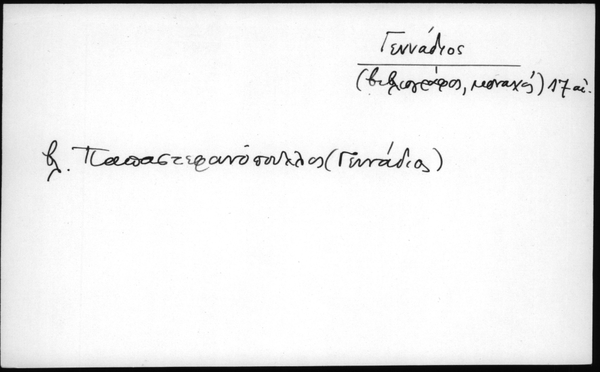 Γεννάδιος
(βιβλιογράφος, μοναχός) 17 αἰ.
βλ. Παπαστεφανόπουλλος (Γεννάδιος)